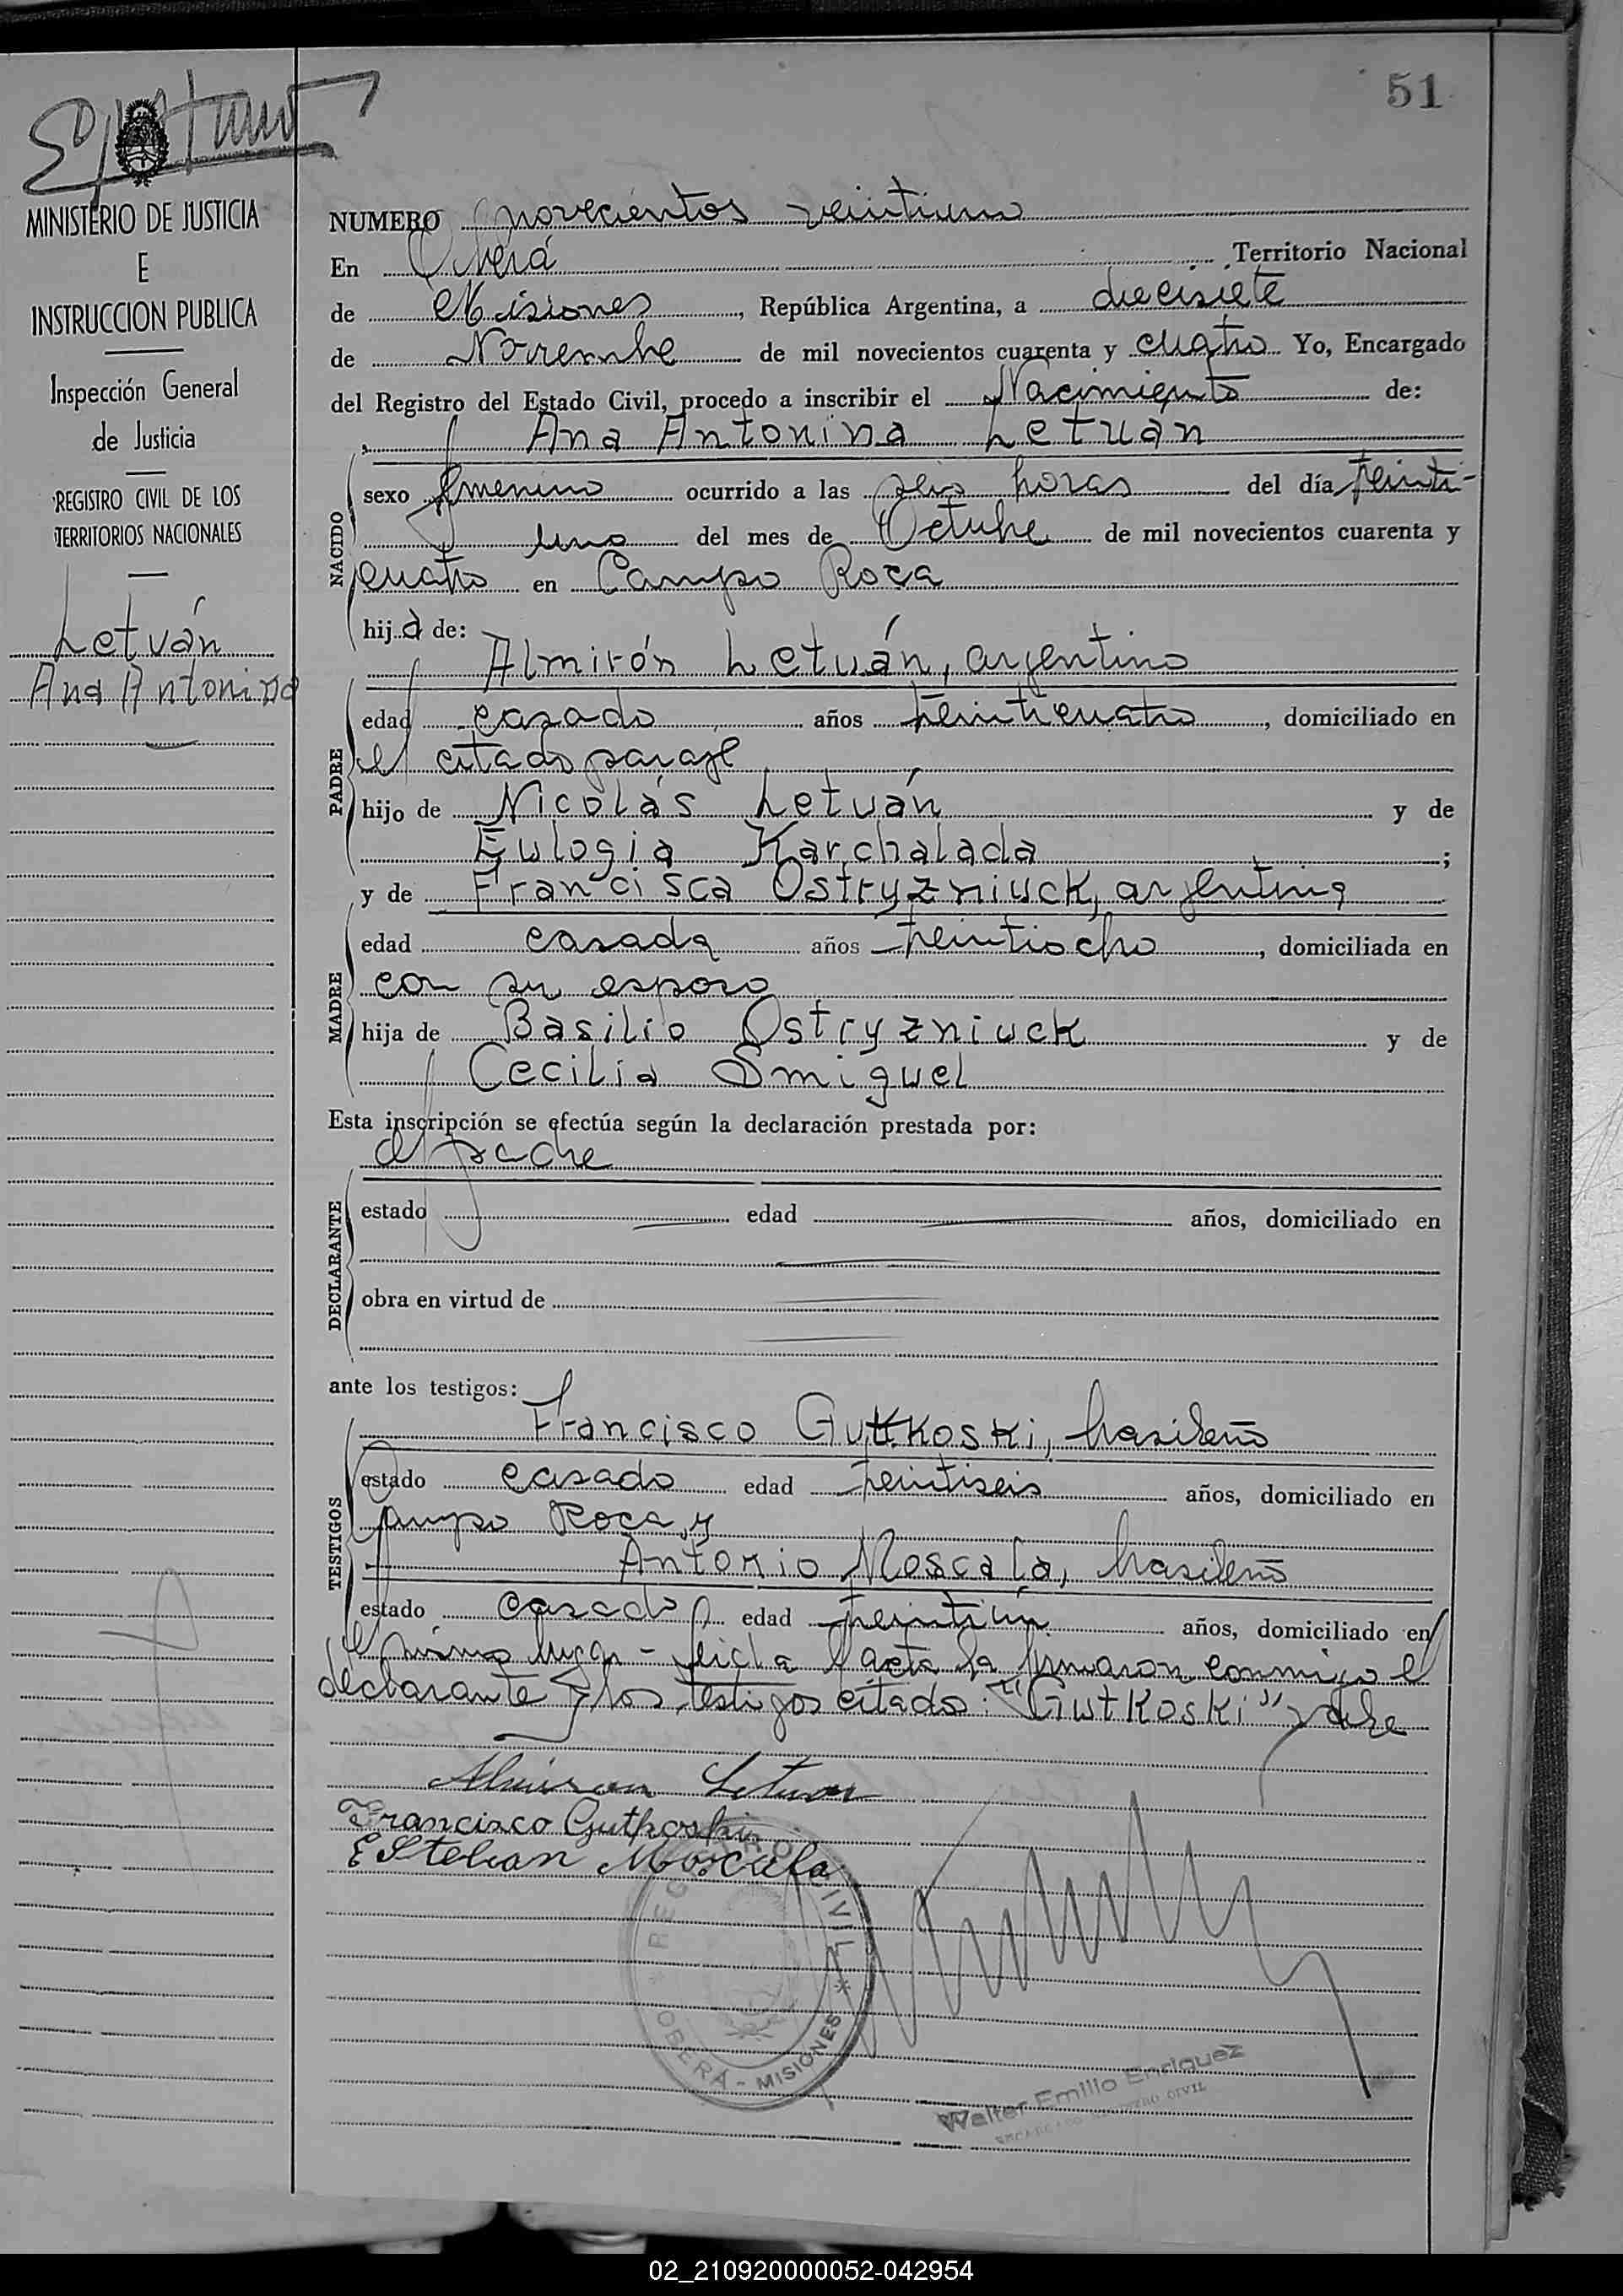 51
MINISTERIO DE JUSTICIA
E
INSTRUCCION PUBLICA
Inspección General
de Justicia
REGISTRO CIVIL DE LOS
TERRITORIOS NACIONALES
Letván
Ana Antonina
NUMERO novecientos veintiuno
En Oberá Territorio Nacional
de Misiones, República Argentina, a diecisiete
de Noviembre de mil novecientos cuarenta y cuatro Yo, Encargado
del Registro del Estado Civil, procedo a inscribir el Nacimiento de:
Ana Antonina Letuan
NACIDO
sexo femenino ocurrido a las seis horas del día veinti-
uno del mes de Octubre de mil novecientos cuarenta y
cuatro en Campo Roca
hija de:
Almirón Letuán, argentino
PADRE
edad casado años veinticuatro, domiciliado en
el citado paraje
hijo de Nicolás Letuán y de
Eulogia Karchalada;
y de Francisca Ostryzniuck, argentina
MADRE
edad casada años veintiocho, domiciliada en
con su esposo
hija de Basilio Ostryzniuck y de
Cecilia Smiguel
Esta inscripción se efectúa según la declaración prestada por:
el padre
DECLARANTE
estado edad años, domiciliado en
obra en virtud de
ante los testigos:
Francisco Gutkkoski, brasileño
TESTIGOS
estado casado edad veintiseis años, domiciliado en
Campo Roca, y
Antonio Moscala, brasileño
estado casado edad veintiún años, domiciliado en
el mismo lugar - leida el acta la firmaron conmigo el
declarante y los testigos citado: "Gutkoski" vale
Almiron Letuan
Francisco Gutkoski
ESteban Moscala
REGISTRO CIVIL * OBERÁ - MISIONES *
Walter Emilio Enriquez
ENCARGADO REGISTRO CIVIL
02_210920000052-042954